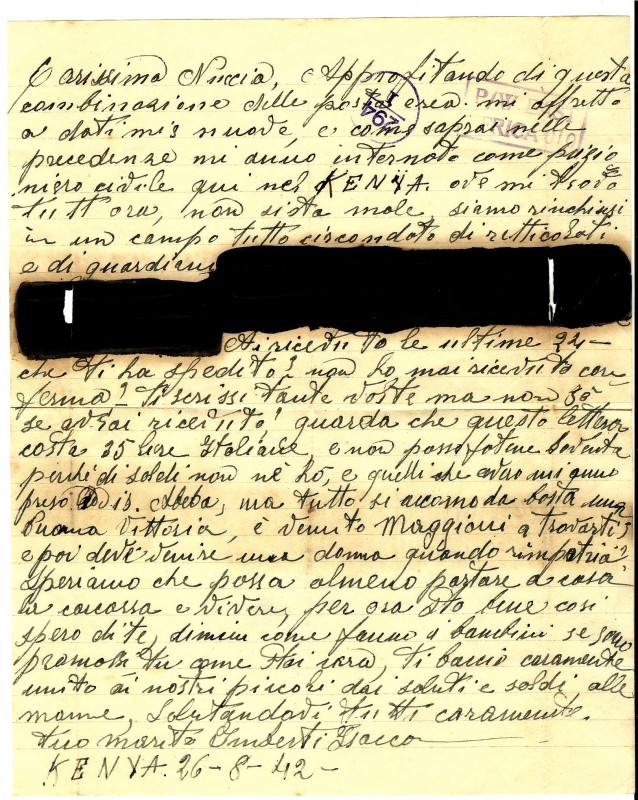 Carissima Nuccia, Approfitando di questa
combinazione delle posta erea mi affretto
a darti mie nuove, e come saprai nelle
precedenze mi anno internato come prigio
niero civile qui nel KENYA. ove mi trovo
tutt'ora, non si sta male, siamo rinchiusi
in un campo tutto circondato di retticolati
e di guardiani
Ai ricevuto le ultime
che ti ha spedito? non ho mai ricevuto con
ferma? Ti scrissi tante volte ma non so
se avrai ricevuto? guarda che questa lettera
costa 35 lire Italiane, e non posso farne sovente
perchè di soldi non nè ho, e quelli che avevo mi anno
preso Adis. Abeba, ma tutto si accomoda basta una
buona vittoria, è venuto Maggioni a trovarti?
e poi deve venire una donna quando rimpatria?
Speriamo che possa almeno portare a casa
la carcassa e vivere, per ora sto bene così
spero di te, dimmi come fanno i bambini se sono
promossi tu come stai cara, ti bacio caramente
unito ai nostri piccoli dai saluti e soldi, alle
mamme, salutandovi tutti caramente.
tuo marito Imberti Isacco
KENYA. 26-8-42-
P/W
294